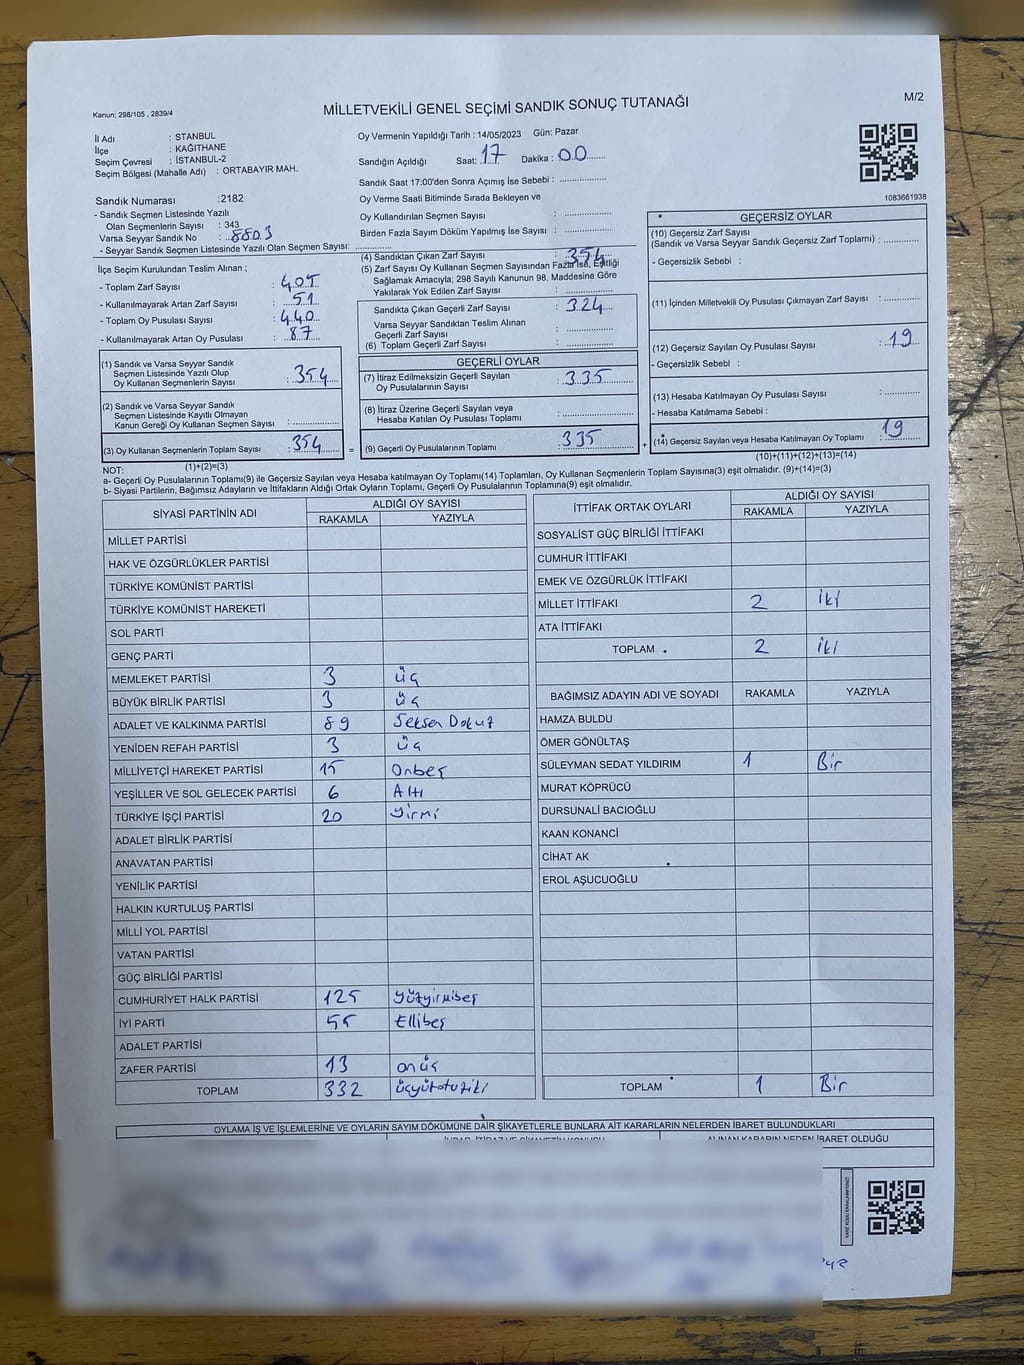 Kanun; 298/105 , 2839/4
MİLLETVEKİLİ GENEL SEÇİMİ SANDIK SONUÇ TUTANAĞI
M/2
İl Adı : STANBUL
İlçe : KAĞITHANE
Seçim Çevresi : İSTANBUL-2
Seçim Bölgesi (Mahalle Adı) : ORTABAYIR MAH.
Oy Vermenin Yapıldığı Tarih : 14/05/2023 Gün: Pazar
Sandığın Açıldığı Saat: 17 Dakika : 00
Sandık Saat 17:00'den Sonra Açımış İse Sebebi :
Oy Verme Saati Bitiminde Sırada Bekleyen ve
Oy Kullandırılan Seçmen Sayısı :
Birden Fazla Sayım Döküm Yapılmış İse Sayısı :
1083661938
Sandık Numarası :2182
- Sandık Seçmen Listesinde Yazılı
Olan Seçmenlerin Sayısı : 343
Varsa Seyyar Sandık No : 8803
- Seyyar Sandık Seçmen Listesinde Yazılı Olan Seçmen Sayısı:
İlçe Seçim Kurulundan Teslim Alınan ;
- Toplam Zarf Sayısı : 405
- Kullanılmayarak Artan Zarf Sayısı : 51
- Toplam Oy Pusulası Sayısı : 440
- Kullanılmayarak Artan Oy Pusulası : 87
(1) Sandık ve Varsa Seyyar Sandık
Seçmen Listesinde Yazılı Olup
Oy Kullanan Seçmenlerin Sayısı : 354
(2) Sandık ve Varsa Seyyar Sandık
Seçmen Listesinde Kayıtlı Olmayan
Kanun Gereği Oy Kullanan Seçmen Sayısı :
(3) Oy Kullanan Seçmenlerin Toplam Sayısı : 354
(1)+(2)=(3)
(4) Sandıktan Çıkan Zarf Sayısı : 354
(5) Zarf Sayısı Oy Kullanan Seçmen Sayısından Fazla İse, Eşitliği
Sağlamak Amacıyla; 298 Sayılı Kanunun 98. Maddesine Göre
Yakılarak Yok Edilen Zarf Sayısı :
Sandıkta Çıkan Geçerli Zarf Sayısı : 324
Varsa Seyyar Sandıktan Teslim Alınan
Geçerli Zarf Sayısı :
(6) Toplam Geçerli Zarf Sayısı :
GEÇERLİ OYLAR
(7) İtiraz Edilmeksizin Geçerli Sayılan
Oy Pusulalarının Sayısı : 335
(8) İtiraz Üzerine Geçerli Sayılan veya
Hesaba Katılan Oy Pusulası Toplamı :
= (9) Geçerli Oy Pusulalarının Toplamı : 335 +
GEÇERSİZ OYLAR
(10) Geçersiz Zarf Sayısı
(Sandık ve Varsa Seyyar Sandık Geçersiz Zarf Toplamı) :
- Geçersizlik Sebebi :
(11) İçinden Milletvekili Oy Pusulası Çıkmayan Zarf Sayısı :
(12) Geçersiz Sayılan Oy Pusulası Sayısı : 19
- Geçersizlik Sebebi :
(13) Hesaba Katılmayan Oy Pusulası Sayısı :
- Hesaba Katılmama Sebebi :
(14) Geçersiz Sayılan veya Hesaba Katılmayan Oy Toplamı : 19
(10)+(11)+(12)+(13)=(14)
NOT:
a- Geçerli Oy Pusulalarının Toplamı(9) ile Geçersiz Sayılan veya Hesaba katılmayan Oy Toplamı(14) Toplamları, Oy Kullanan Seçmenlerin Toplam Sayısına(3) eşit olmalıdır. (9)+(14)=(3)
b- Siyasi Partilerin, Bağımsız Adayların ve İttifakların Aldığı Ortak Oyların Toplamı, Geçerli Oy Pusulalarının Toplamına(9) eşit olmalıdır.
SİYASİ PARTİNİN ADI ALDIĞI OY SAYISI
RAKAMLA YAZIYLA
MİLLET PARTİSİ
HAK VE ÖZGÜRLÜKLER PARTİSİ
TÜRKİYE KOMÜNİST PARTİSİ
TÜRKİYE KOMÜNİST HAREKETİ
SOL PARTİ
GENÇ PARTİ
MEMLEKET PARTİSİ 3 üç
BÜYÜK BİRLİK PARTİSİ 3 üç
ADALET VE KALKINMA PARTİSİ 89 Seksen Dokuz
YENİDEN REFAH PARTİSİ 3 üç
MİLLİYETÇİ HAREKET PARTİSİ 15 Onbeş
YEŞİLLER VE SOL GELECEK PARTİSİ 6 Altı
TÜRKİYE İŞÇİ PARTİSİ 20 Yirmi
ADALET BİRLİK PARTİSİ
ANAVATAN PARTİSİ
YENİLİK PARTİSİ
HALKIN KURTULUŞ PARTİSİ
MİLLİ YOL PARTİSİ
VATAN PARTİSİ
GÜÇ BİRLİĞİ PARTİSİ
CUMHURİYET HALK PARTİSİ 125 yüzyirmibeş
İYİ PARTİ 55 Ellibeş
ADALET PARTİSİ
ZAFER PARTİSİ 13 onüç
TOPLAM 332 üçyüzotuziki
İTTİFAK ORTAK OYLARI ALDIĞI OY SAYISI
RAKAMLA YAZIYLA
SOSYALİST GÜÇ BİRLİĞİ İTTİFAKI
CUMHUR İTTİFAKI
EMEK VE ÖZGÜRLÜK İTTİFAKI
MİLLET İTTİFAKI 2 iki
ATA İTTİFAKI
TOPLAM 2 iki
BAĞIMSIZ ADAYIN ADI VE SOYADI RAKAMLA YAZIYLA
HAMZA BULDU
ÖMER GÖNÜLTAŞ
SÜLEYMAN SEDAT YILDIRIM 1 Bir
MURAT KÖPRÜCÜ
DURSUNALİ BACIOĞLU
KAAN KONANCİ
CİHAT AK
EROL AŞUCUOĞLU
TOPLAM 1 Bir
OYLAMA İŞ VE İŞLEMLERİNE VE OYLARIN SAYIM DÖKÜMÜNE DAİR ŞİKAYETLERLE BUNLARA AİT KARARLARIN NELERDEN İBARET BULUNDUKLARI
ALINAN KARARIN NEDEN İBARET OLDUĞU